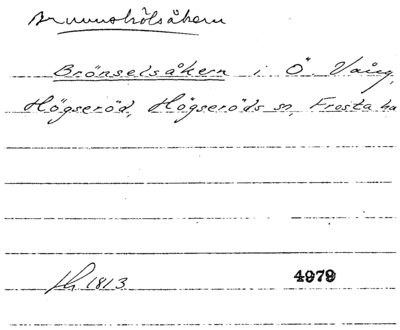 Brunnshölsåkern
Brönselsåkern i Ö Vång,
Högseröd, Högseröds sn, Frosta hd
1813 4979